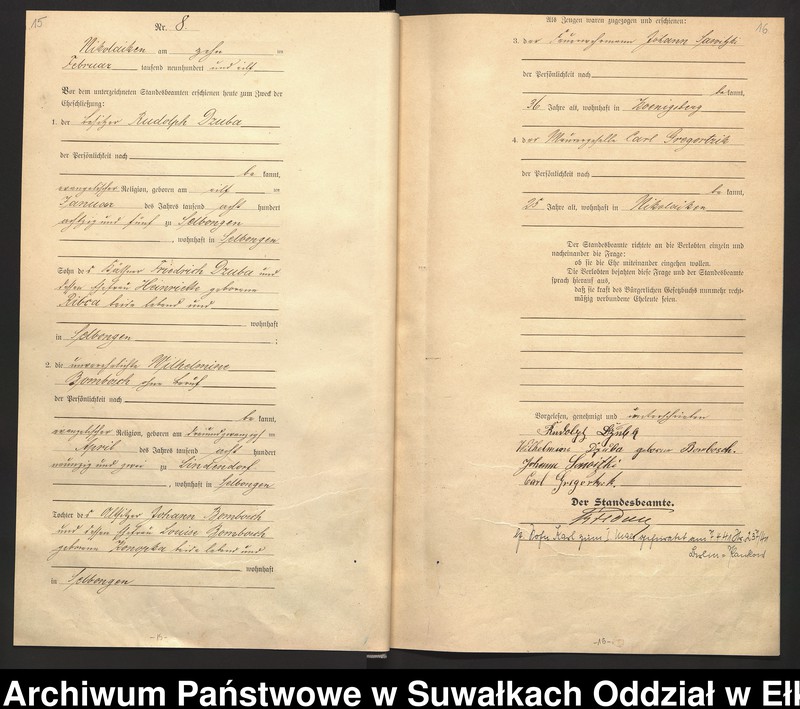 15
Nr. 8.
Nikolaiken am zehn ten
Februar tausend neunhundert und elf
Vor dem unterzeichneten Standesbeamten erschienen heute zum Zweck der
Eheschließung:
1. der Besitzer Rudolph Dzuba
der Persönlichkeit nach
be kannt,
evangelischer Religion, geboren am elf ten
Januar des Jahres tausend acht hundert
achtzig und fünf zu Selbongen
, wohnhaft in Selbongen
Sohn des Käthner Friedrich Dzuba und
dessen Ehefrau Henriette geborene
beide lebend und
wohnhaft
in Selbongen ;
2. die unverehelichte Wilhelmine
Bombosch ohne Beruf
der Persönlichkeit nach
be kannt,
evangelischer Religion, geboren am dreiundzwanzigs ten
April des Jahres tausend acht hundert
neunzig und zwei zu Lindendorf
, wohnhaft in Selbongen
Tochter des Altsitzer Johann Bombosch
und dessen Ehefrau Louise Bombosch
geborene Konopka beide lebend und
wohnhaft
in Selbongen
-15-
Als Zeugen waren zugezogen und erschienen:
16
3. der Johann
der Persönlichkeit nach
be kannt,
36 Jahre alt, wohnhaft in Koenigsberg
4. der Maurergeselle Carl Gregortzik
der Persönlichkeit nach
be kannt,
25 Jahre alt, wohnhaft in Nikolaiken
Der Standesbeamte richtete an die Verlobten einzeln und
nacheinander die Frage:
ob sie die Ehe miteinander eingehen wollen.
Die Verlobten bejahten diese Frage und der Standesbeamte
sprach hierauf aus,
daß sie kraft des Bürgerlichen Gesetzbuchs nunmehr recht-
mäßig verbundene Eheleute seien.
Vorgelesen, genehmigt und unterschrieben
Rudolph Dzuba
Wilhelmine Dzuba geborene Bombosch.
Johann
Carl Gregortzik.
Der Standesbeamte.
Karl zum geheiratet am
Berlin-Pankow
-16-
Archiwum Państwowe w Suwałkach Oddział w Ełk